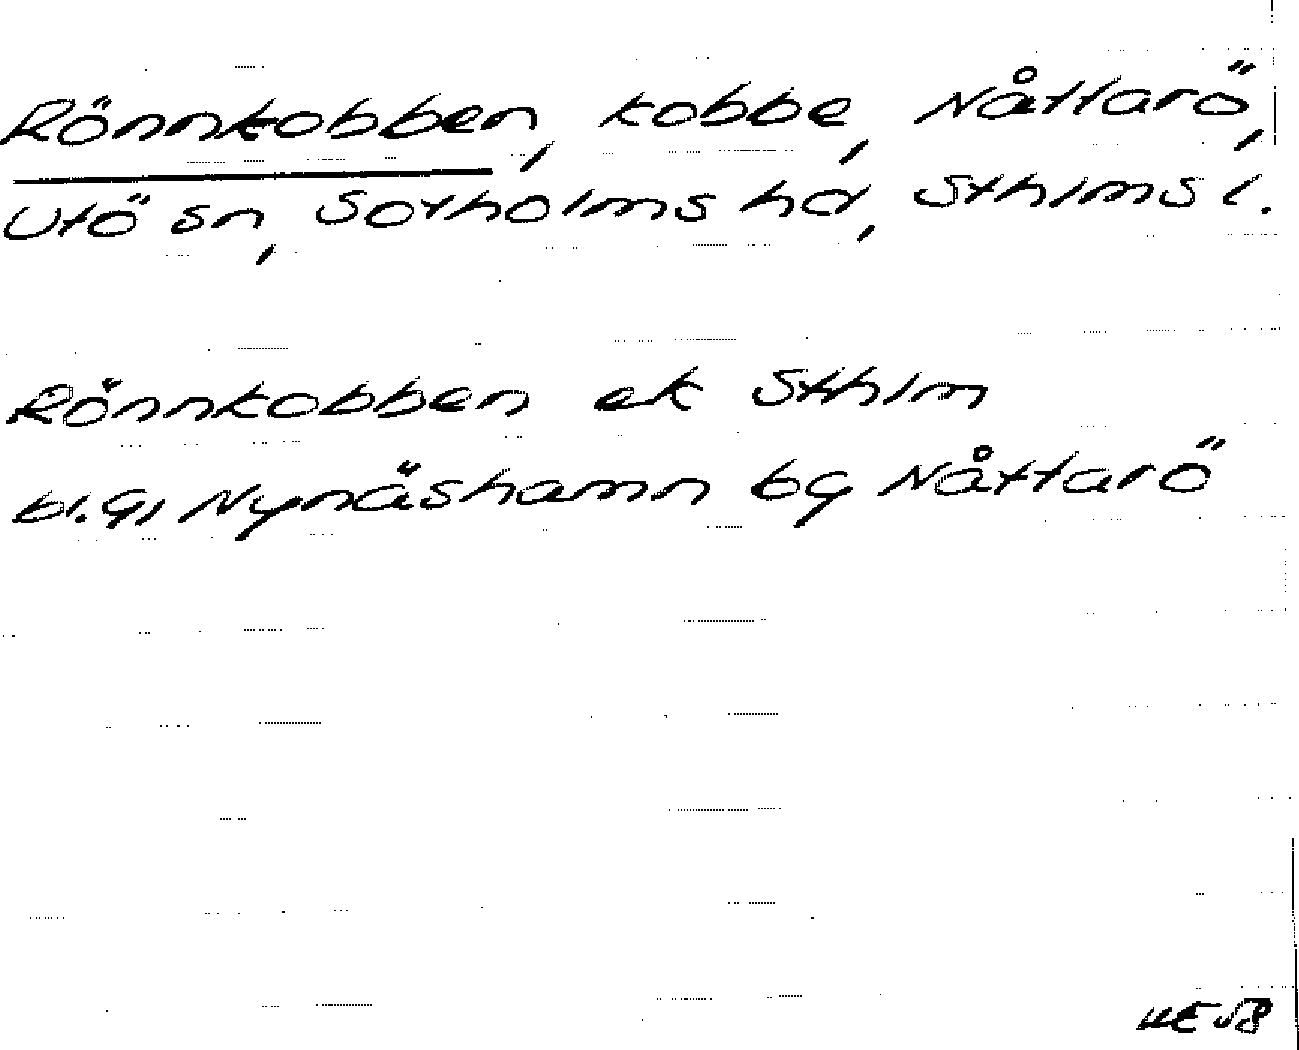 Rönnkobben, kobbe, Nåttarö,
Utö sn, Sotholms hd, Sthlms l.
Rönnkobben ek Sthlm
bl. 91 Nynäshamn bg Nåttarö